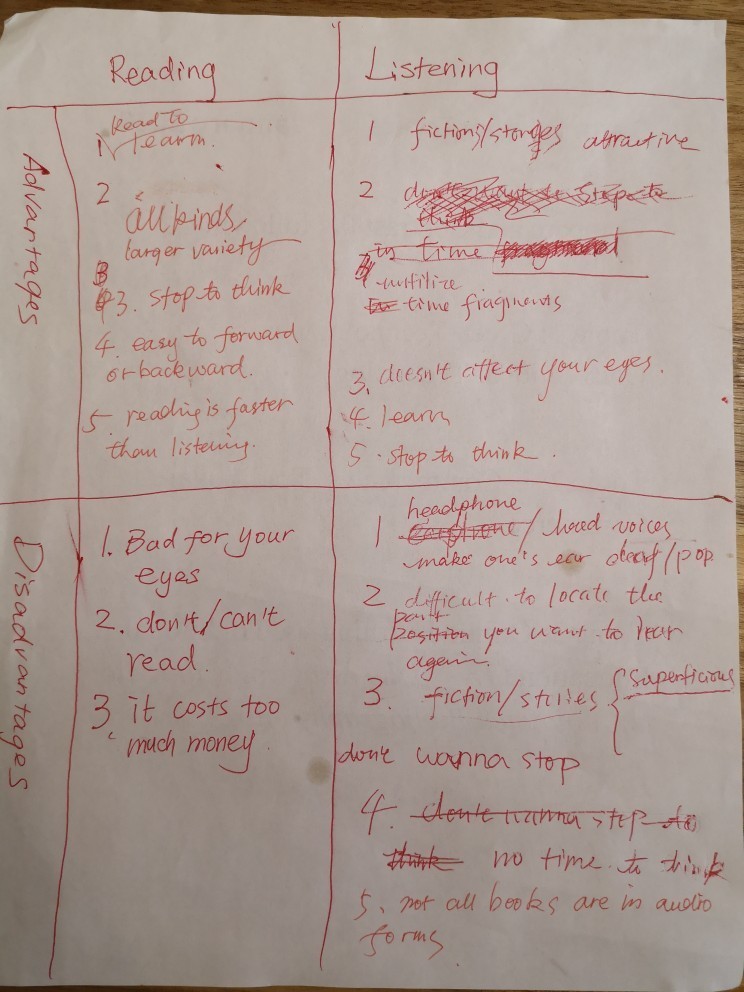 Reading
Listening
Advantages
Read to
1 learn.
2 all kinds,
larger variety
3. stop to think
4. easy to forward
or backward.
5. reading is faster
than listening.
1 fictions/stories attractive
2
in time
utilize
time fragments
3. doesn't affect your eyes.
4. learn
5. stop to think.
Disadvantages
1. Bad for your
eyes
2. don't/can't
read.
3 it costs too
much money.
headphone
1 earphone/ voices
make one's ear deaf/pop
2 difficult to locate the
part
position you want to hear
again.
3. fiction/stories { Superficious
don't wanna stop
4. don't wanna stop to
think no time to think
5. not all books are in audio
forms.